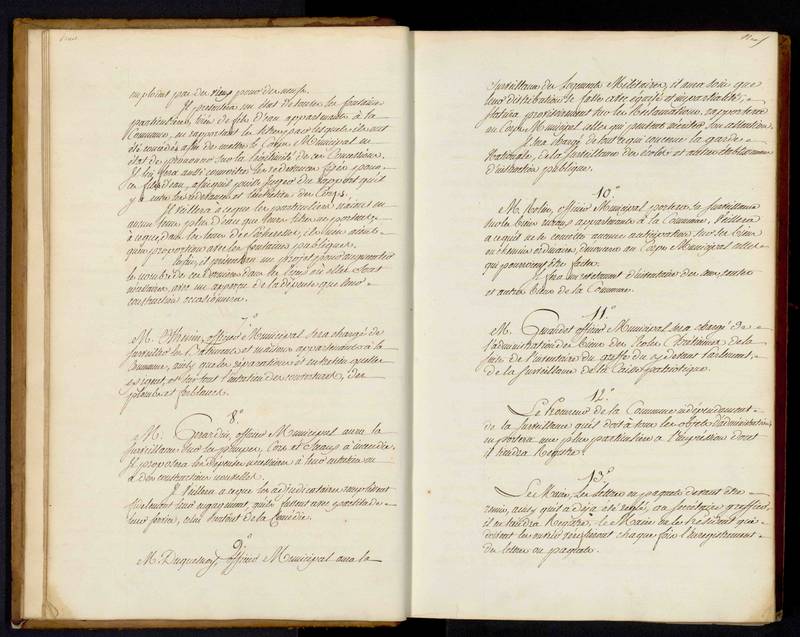 employent par des tuyaux pour des neufs.
Il présentera un état de toutes les fontaines
particulières, ou de fils d'eau appartenants à la
Commune, en rapportant les titres par lesquels elles ont
été accordées afin de mettre le Corps Municipal en
état de prononcer sur la légitimité de ces Concessions.
Il en fera aussi connoitre les redevances fixées pour
ces fils d'eau, afin qu'il puisse juger du rapport qu'il
y a entre les redevances et l'entretien des Corps.
Il veillera à ce que les particuliers n'aient en
aucun tems plus d'eau que leurs titres ne portent,
à ce que, dans les tems de sécheresse, ils n'en aient
qu'en proportion avec les fontaines publiques.
Enfin, il présentera un projet pour augmenter
le nombre de ces dernières dans les lieux où elles sont
nécessaires, avec un apperçu de la dépense que leur
construction occasionnera.
7.°
M. officier Municipal sera chargé de
surveiller les Bâtiments et maisons appartenants à la
Commune, ainsi que les réparations et entretien qu'elles
exigent, et sur tout l'entretien des couvertures, des
plombs et ferblancs.
8.°
M. Gerardin, officier Municipal aura la
surveillance sur les pompes, Cors et Seaux à incendie.
Il proposera les dépenses nécessaires à leur entretien ou
à des constructions nouvelles.
Il veillera à ce que les adjudicataires remplissent
fidèlement leurs engagemens, qu'ils fassent avec exactitude
leur service, selon tout de la Comédie.
9.°
M. Duquesnoy, officier Municipal aura la
surveillance des logements Militaires, il aura soin que
leur distribution se fasse avec égalité et impartialité,
statuera provisoirement sur les Réclamations, rapportera
au Corps Municipal celles qui pourront mériter son attention.
Il sera chargé de tout ce qui concerne la garde
Nationale, de la surveillance des écoles et autres établissemens
d'instruction publique.
10.°
M. Rolin, officier Municipal portera sa surveillance
sur les biens ruraux appartenants à la Commune, veillera
à ce qu'il ne se commette aucune anticipation sur les biens
ou chemins ordinaires, dénoncera au Corps Municipal celles
qui pourroient être faites.
Il fera un recolement d'inventaire des cens, rentes
et autres biens de la Commune.
11.°
M. officier Municipal sera chargé de
l'administration des biens des Ecoles Chrétiennes, de la
suite de l'inventaire du greffe du ci devant Parlement,
de la surveillance de la Caisse patriotique.
12.°
Le Procureur de la Commune indépendamment
de la surveillance qu'il doit à tous les objets d'administration,
en portera une plus particulière à l'impression dont
il tiendra Registre.
13.°
Le Maire, les lettres ou paquets devant être
remis, ainsi qu'il a déjà été réglé, au Secrétaire greffier,
il en tiendra Registre, le Maire ou le Président qui
doivent les ouvrir viseront chaque fois l'enregistrement
des lettres ou paquets.